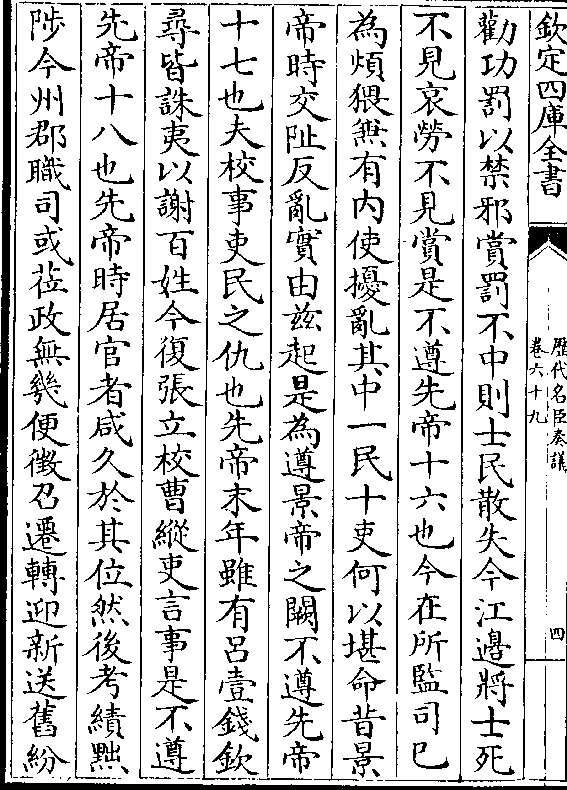 欽定四庫全書
歷代名臣奏議
卷六十九
四
勸功罰以禁邪賞罰不中則士民散失今江邉將士死
不見哀勞不見賞是不遵先帝十六也今在所監司已
為煩猥無有內使擾亂其中一民十吏何以堪命昔景
帝時交阯反亂實由兹起是為遵景帝之闕不遵先帝
十七也夫校事吏民之仇也先帝末年雖有呂壹錢欽
尋皆誅夷以謝百姓今復張立校曹縱吏言事是不遵
先帝十八也先帝時居官者咸久於其位然後考績黜
陟今州郡職司或莅政無幾便徵召遷轉迎新送舊紛